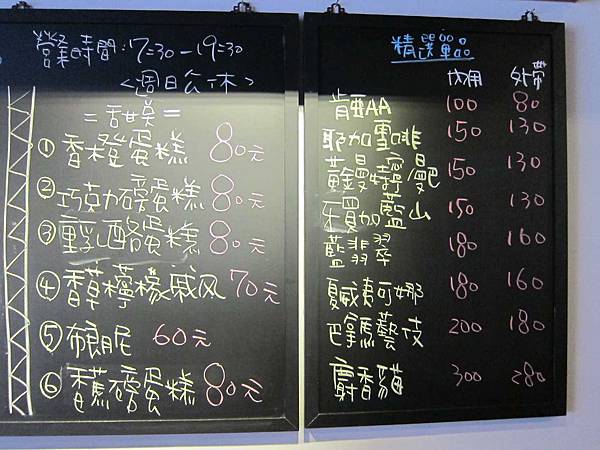 營業時間:7:30-19:30
<週日公休>
=甜美=
①香橙蛋糕 80元
②巧克力磅蛋糕 80元
③重乳酪蛋糕 80元
④香草檸檬戚风 70元
⑤布朗尼 60元
⑥香蕉磅蛋糕 80元
精選單品
內用 外帶
肯亞AA 100 80
耶加雪啡 150 130
150 130
牙買加藍山 150 130
藍翡翠 180 160
夏威夷可娜 180 160
巴拿馬藝伎 200 180
麝香貓 300 280